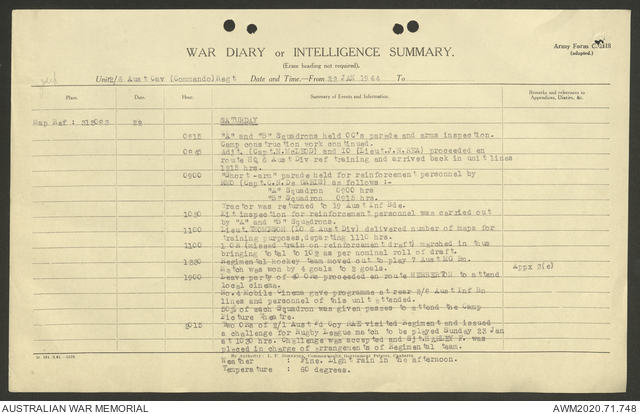 WAR DIARY or INTELLIGENCE SUMMARY.
Army Form C.2118
(adapted.)
(Erase heading not required).
Unit 2/6 Aust Cav (Commando) Regt Date and Time.—From 22 JAN 1944 To
Place. Date. Hour. Summary of Events and Information. Remarks and references to
Appendices, Diaries, &c.
Map Ref : 22 SATURDAY
0815 "A" and "B" Squadrons held OC's parade and arms inspection.
Camp construction work continued.
0845 Adjt. (Capt.N.McLEOD) and IO (Lieut.J.N.REA) proceeded en
route HQ 6 Aust Div ref training and arrived back in unit lines
1915 hrs.
0900 "Short-arm" parade held for reinforcement personnel by
RMO (Capt.C.N.De GARIS) as follows :-
"A" Squadron 0900 hrs
"B" Squadron 0915 hrs.
Tractor was returned to 19 Aust Inf Bde.
1030 Kit inspection for reinforcement personnel was carried out
by "A" and "B" Squadrons.
1100 Lieut.THOMPSON (IO 6 Aust Div) delivered number of maps for
training purposes, departing 1110 hrs.
1100 1 OR (missed train on reinforcement draft) marched in thus
bringing total to 102 as per nominal roll of draft.
1330 Regimental hockey team moved out to play 7 Aust MG Bn.
Match was won by 4 goals to 2 goals. Appx 3(e)
1900 Leave party of 40 ORs proceeded en route HERBERTON to attend
local cinema.
No.4 Mobile Cinema gave programme at rear Aust Inf Bn
lines and personnel of this unit attended.
50% of each Squadron was given passes to attend the Camp
Picture Theatre.
2015 Two ORs of 2/1 Aust Fd Coy RAE visited Regiment and issued
a challenge for Rugby League match to be played Sunday 23 Jan
at 1030 hrs. Challenge was accepted and Sjt. P. was
placed in charge of arrangements of Regimental team.
By Authority: L. F. Johnston, Commonwealth Government Printer, Canberra.
Weather : Fine. Light rain in the afternoon.
Temperature : 80 degrees.
AUSTRALIAN WAR MEMORIAL
AWM2020.71.748